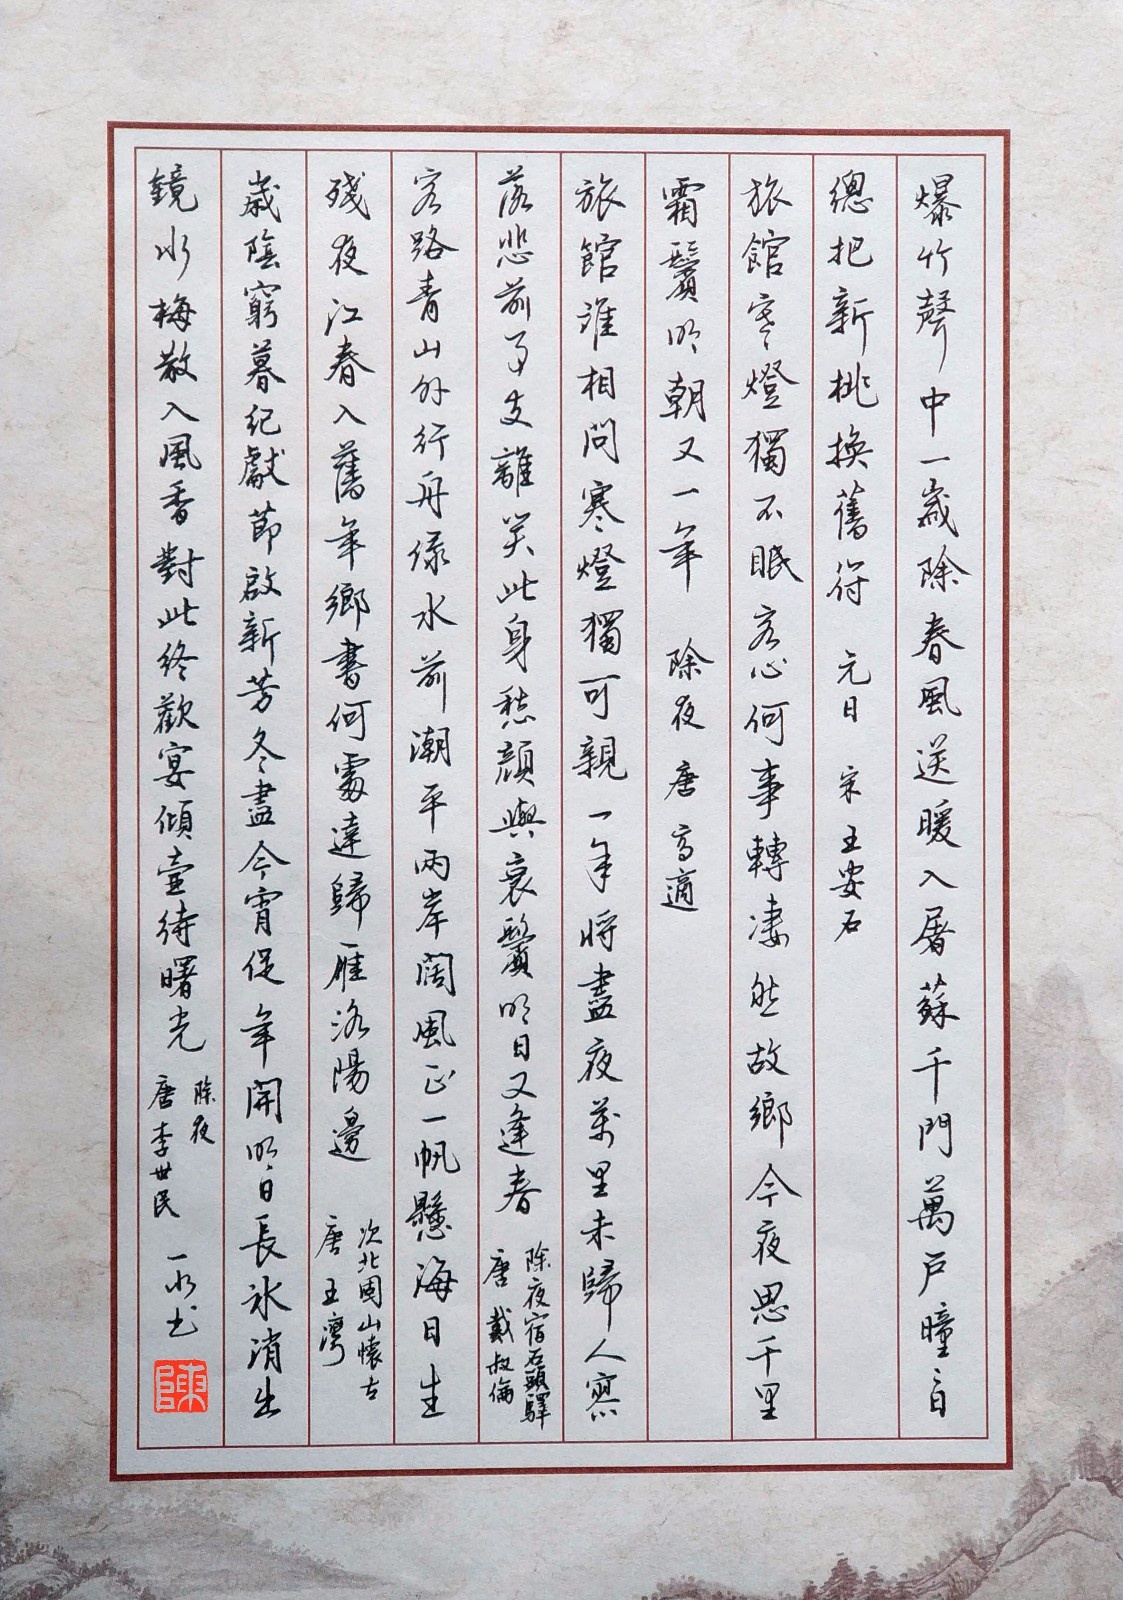 爆竹聲中一歲除春風送暖入屠蘇千門萬戶曈〻日
總把新桃換舊符 元日 宋 王安石
旅館寒燈獨不眠客心何事轉凄然故鄉今夜思千里
霜鬢明朝又一年 除夜 唐 高適
旅館誰相問寒燈獨可親一年將盡夜萬里未歸人寥
落悲前事支離笑此身愁顏與衰鬢明日又逢春
除夜宿石頭驛
唐 戴叔倫
客路青山外行舟綠水前潮平兩岸闊風正一帆懸海日生
殘夜江春入舊年鄉書何處達歸雁洛陽邊
次北固山懷古
唐 王灣
歲陰窮暮紀獻節啟新芳冬盡今宵促年開明日長冰消出
鏡水梅散入風香對此終歡宴傾壺待曙光
除夜
唐 李世民
一水书
陳